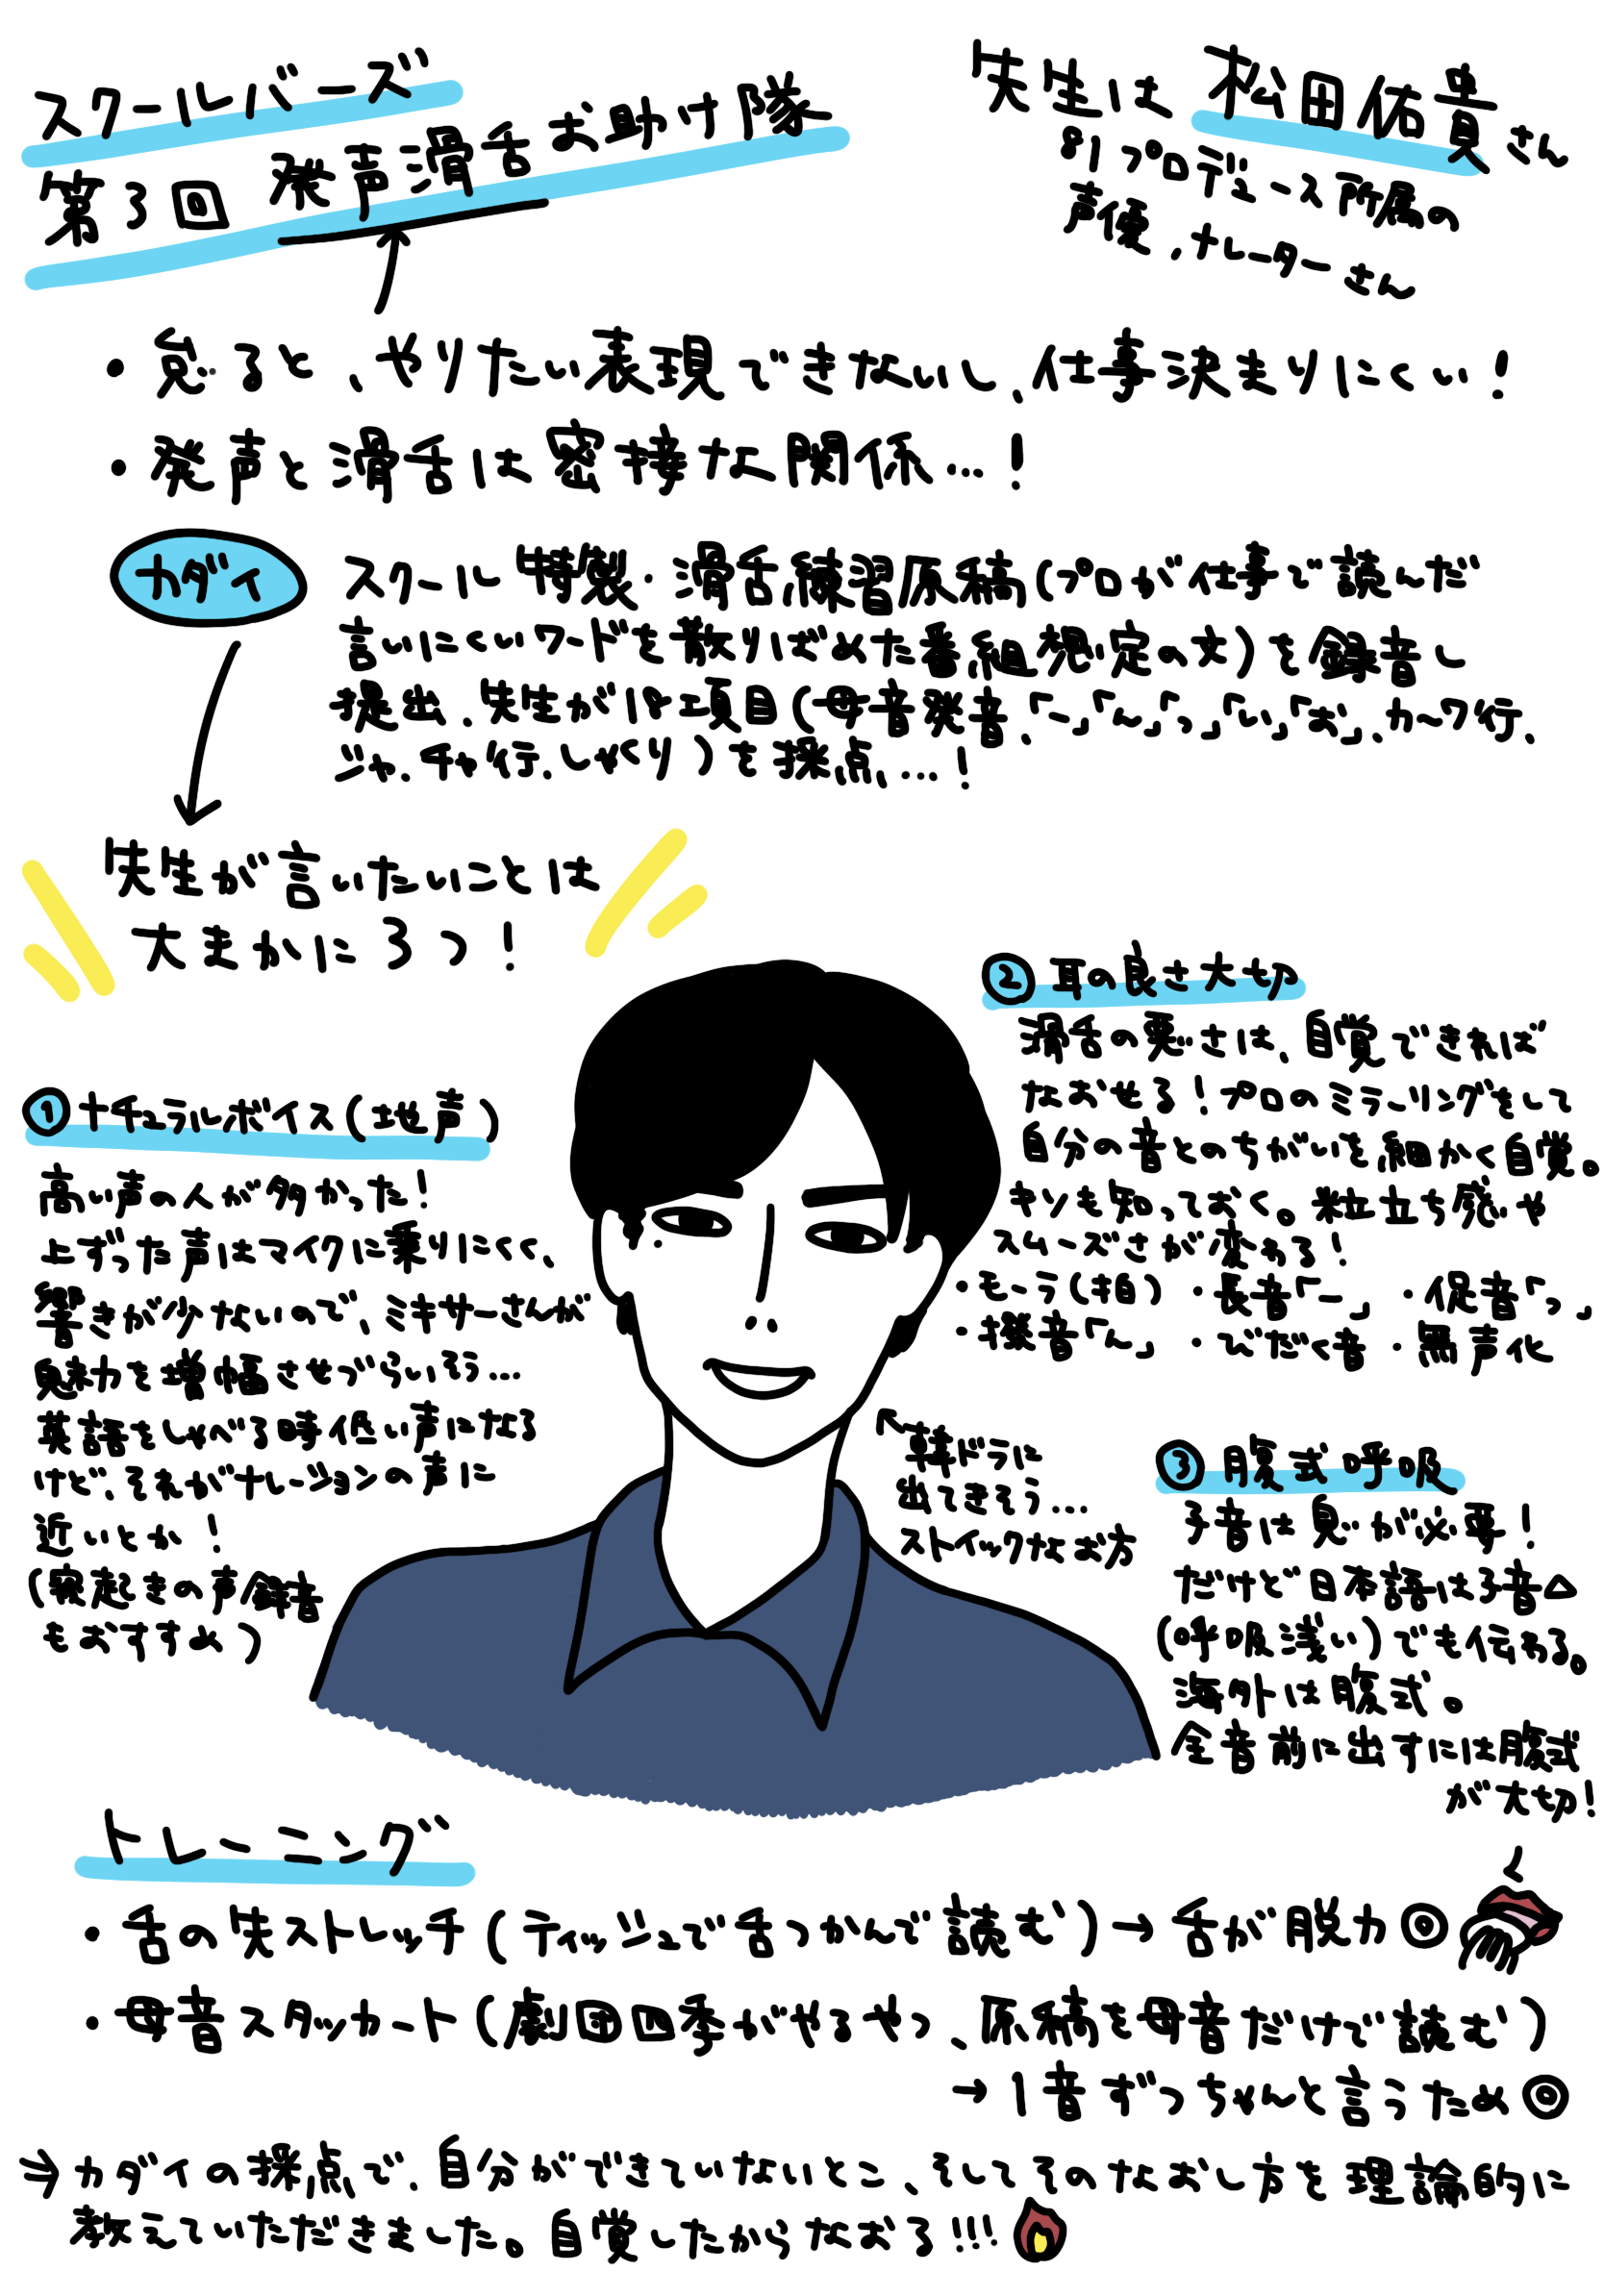 スクールバーズ
第3回 発声滑舌お助け隊
先生は 松田佑貴さん
81プロデュース所属の
声優、ナレーターさん
・怠ると、やりたい表現できないし、仕事決まりにくい!
・発声と滑舌は密接な関係…!
カダイ
スクール特製・滑舌練習原稿(プロが仕事で読んだ
言いにくいワードを散りばめた番組想定の文)を録音し
提出、先生が18項目(母音発音、「ー」「ん」「っ」「い」「お」、カ〜ワ行、
ジャ、チャ行、しゃくり)を採点…!
先生が言いたいことは
大まかに3つ!
① ナチュラルボイス(地声)
高い声の人が多かった!
上ずった声はマイクに乗りにくく、
響きが少ないので、ミキサーさんが
魅力を増幅させづらいそう…
英語をしゃべる時低い声になる
けど、それがナレーションの声に
近いとか!
(寝起きの声録音
もおすすめ)
② 耳の良さ大切
滑舌の悪さは、自覚できれば
なおせる!プロのミラーリングをして
自分の音とのちがいを細かく自覚。
キソも知っておく。粒立ち感や
スムーズさが変わる!
・モーラ(拍) ・長音「ー」 ・促音「っ」
・撥音「ん」 ・びだく音 ・無声化
韓ドラに
出てきそう…
ストイックなお方
③ 腹式呼吸
子音は息が必要!
だけど日本語は子音△
(呼吸浅い)でも伝わる。
海外は腹式。
全音前に出すには腹式
が大切!
トレーニング
・舌の先ストレッチ(ティッシュで舌つかんで読む)→舌が脱力◎
・母音スタッカート(劇団四季がやるやつ、原稿を母音だけで読む)
→1音ずつちゃんと言うため◎
→カダイの採点で、自分ができていないとこ、そしてそのなおし方を理論的に
教えていただきました。自覚したからなおる!!!